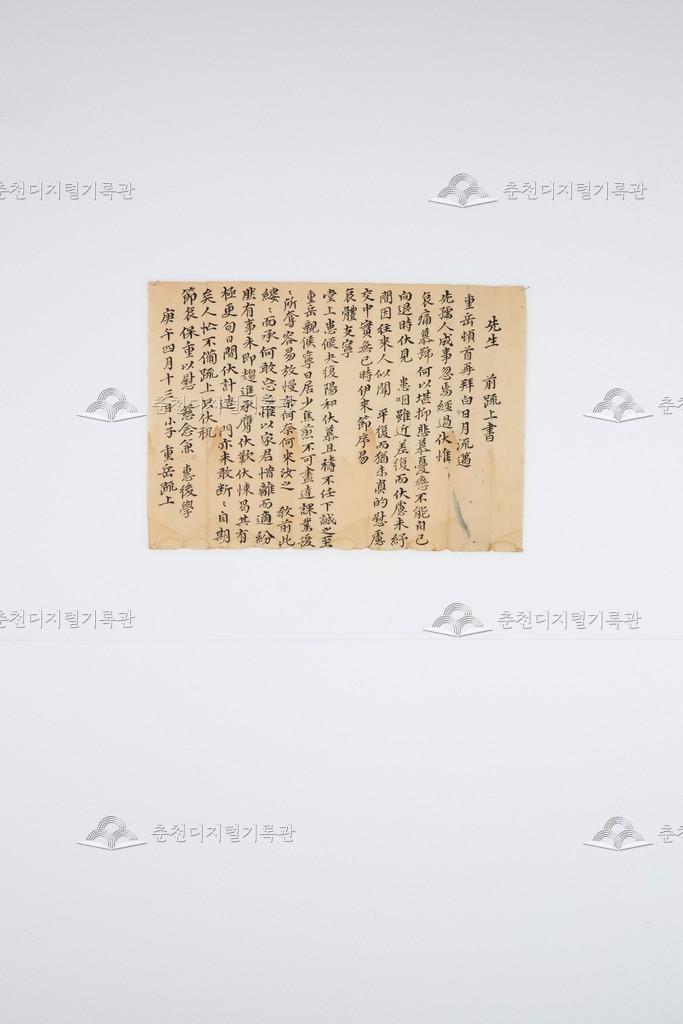 先生 前疏上書
重岳頓首再拜白日月流邁
先孺人成事忽焉經過伏惟
哀痛慕號何以堪抑悲慕憂戀不能自已
向退時伏見 患咽雖近差復而伏慮未紓
間因往來人似聞 平復而猶未眞的慰慮
交中實無已時伊來節序易
哀體支寧
堂上患候夬復陽和伏慕且禱不任下誠之至
重岳親候寧日居少焦煎不可盡達課業緩
〻所奪容易放慢奈何奈何來汝之 敎前此
縷〻而承何敢忘之惟以家君惜離而適紛
然有事未卽趨進承膺伏歎伏悚曷其有
極更旬日間伏計造 門亦未敢斷〻自期
矣人忙不備疏上只伏祝
節哀保重以慰 慈念兼 惠後學
庚午四月十三日小子 重岳疏上
춘천디지털기록관
춘천디지털기록관
춘천디지털기록관
춘천디지털기록관
춘천디지털기록관
춘천디지털기록관